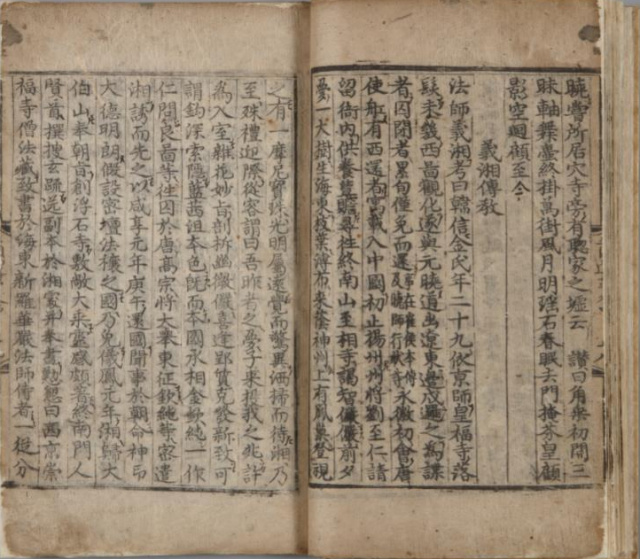 曉嘗所居穴寺旁有聰家之墟云 讚曰角乘初開三
昧軸舞壺終掛萬街風月明瑤石春眠去門掩芬皇顧
影空廻顧至今
義湘傳教
法師義湘考曰韓信金氏年二十九依京師皇福寺落
髮未幾西圖觀化遂與元曉道出遼東邊戍邏之爲諜
者囚閉者累旬僅免而還事在崔侯本傳及曉師行狀等永徽初會唐
使舡有西還者寓載入中國初止揚州州將劉至仁請
留衙內供養豊贍尋往終南山至相寺謁智儼儼前夕
夢一大樹生海東枝葉溥布來蔭神州上有鳳巢登視
之有一摩尼寶珠光明屬遠覺而驚異洒掃而待湘乃
至殊禮迎際從容謂曰吾昨者之夢子來投我之兆許
爲入室雜花妙旨剖析幽微儼喜逢郢質克發新致可
謂鈎深索隱藍茜沮本色旣而本國丞相金欽純一作
仁問良啚等往囚於唐高宗將大擧東征欽純等密遣
湘誘而先之以咸享元年庚午還國聞事於朝命神印
大德明朗假設密壇法禳之國乃免儀鳳元年湘歸大
伯山奉朝旨創浮石寺敷敞大乘靈感頗著終南門人
賢首撰搜玄疏送副本於湘處幷奉書懃懇曰西京崇
福寺僧法藏致書於海東新羅華嚴法師侍者一從分